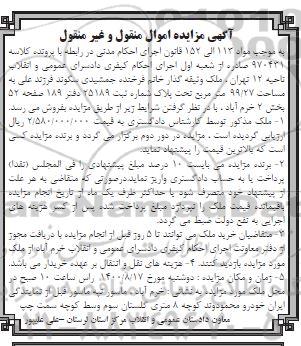 آگهی مزایده اموال منقول و غیر منقول
به موجب مواد ۱۱۳ الی ۱۵۲ قانون اجرای احکام مدنی در رابطه با پرونده کلاسه
۹۷۰۴۳۱ صادره از شعبه اول اجرای احکام کیفری دادسرای عمومی و انقلاب
ناحیه ۱۲ تهران ، ملک وثیقه گذار خانم فرخنده جمشیدی بیکوند فرزند علی به
مساحت ۹۹/۲۷ متر مربع تحت پلاک شماره ثبت ۲۵۱۸۹ دفتر ۱۸۹ صفحه ۵۲
بخش ۲ خرم آباد ، با در نظر گرفتن شرایط زیر از طریق مزایده بفروش می رسد.
۱- ملک مذکور توسط کارشناس دادگستری به قیمت ۲/۵۸۰/۰۰۰/۰۰۰ ریال
ارزیابی گردیده است ، مزایده در دور دوم برگزار می گردد و برنده مزایده کسی
است که بالاترین قیمت را پیشنهاد نماید.
۲- برنده مزایده می بایست ۱۰ درصد مبلغ پیشنهادی را فی المجلس (نقدا)
پرداخت یا به حساب دادگستری واریز نماید.درصورتی که متقاضی به هر علت
از پیشنهاد خود منصرف شود یا حداکثر ظرف یک ماه از تاریخ انجام مزایده
باقیمانده قیمت ملک را نپردازد مبلغ پرداخت شده پس از کسر هزینه های
اجرایی به نفع دولت ضبط می گردد.
۳- متقاضیان خرید ملک می توانند تا ۵ روز قبل از انجام مزایده با دریافت مجوز
از دفتر معاونت اجرای احکام کیفری دادسرای عمومی و انقلاب خرم آباد از ملک
مورد مزایده بازدید کنند. ۴- هزینه های نقل و انتقال بر عهده خریدار می باشد.
۵- زمان و مکان مزایده : دوشنبه مورخ ۱۴۰۰/۸/۱۷ راس ساعت ۱۰ صبح در
محل ملک مورد مزایده به نشانی : خرم آباد ماسور نرسیده به
ایران خودرو محمودوند کوچه ۸ متری گلستان سوم وسط کوچه سمت چپ
معاون دادستان عمومی و انقلاب مرکز استان لرستان -علی علیپور